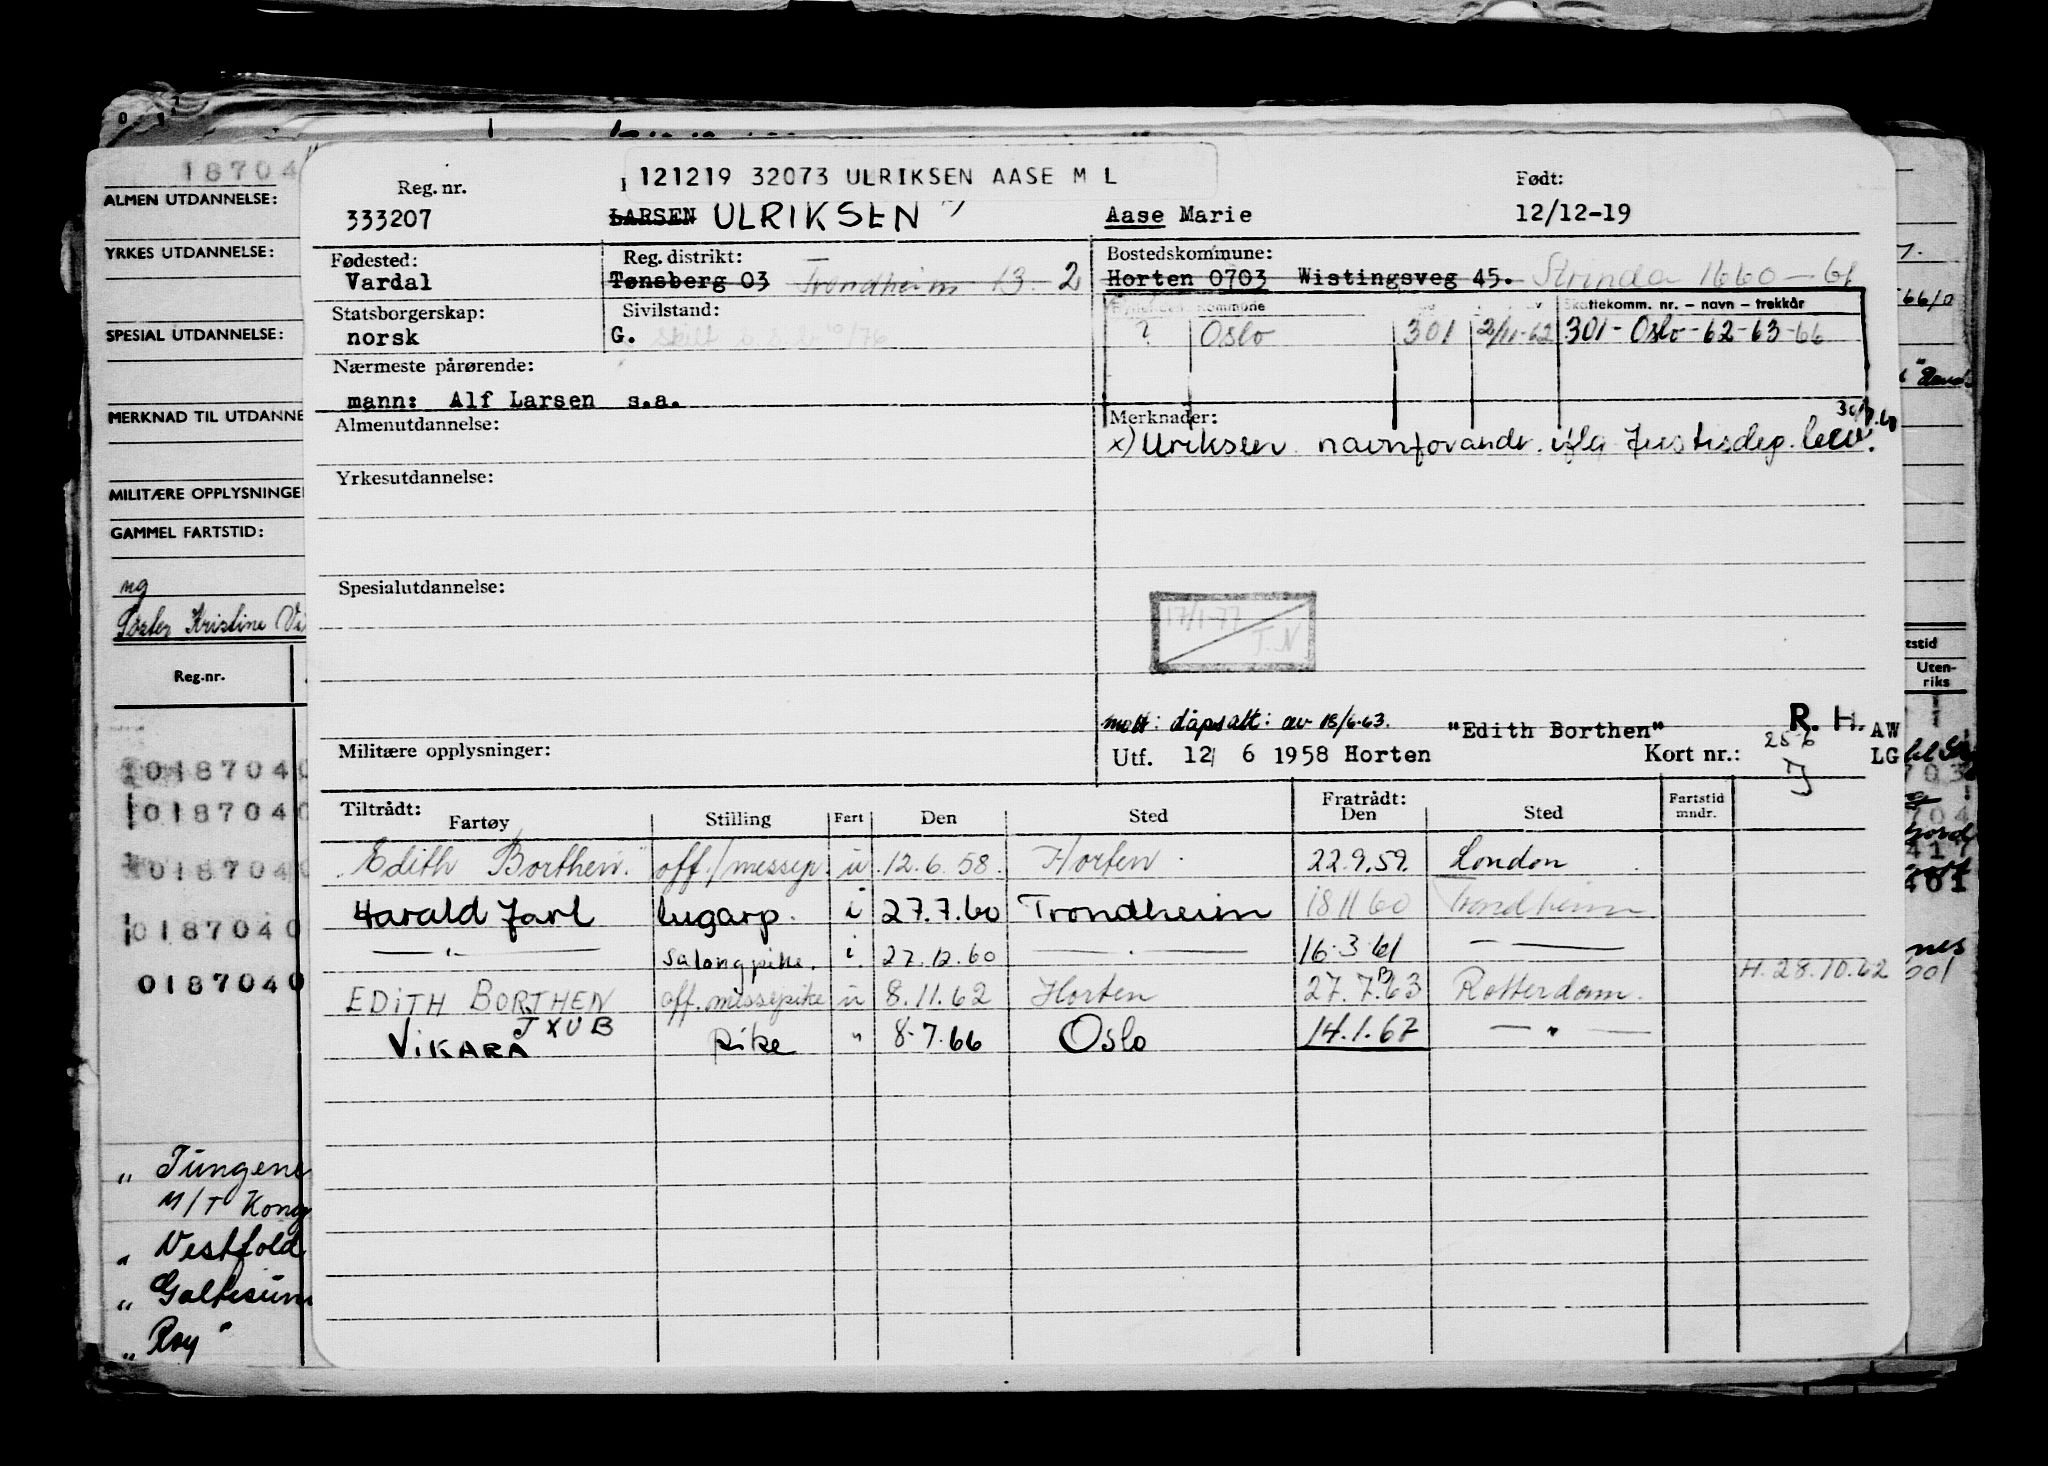 18704
ALMEN UTDANNELSE:
YRKES UTDANNELSE:
SPESIAL UTDANNELSE:
MERKNAD TIL UTDANNE
MILITÆRE OPPLYSNINGE
GAMMEL FARTSTID:
ng
Søster Kristine Vi
Reg.nr.
0187040
0187040
0187040
0187040
0187040
„ Tungene
M/T Kong
„ Vestfold
„ Galtesun
„ Roy"
121219 32073 ULRIKSEN AASE M L
Reg. nr. Født:
333207 LARSEN ULRIKSEN x) Aase Marie 12/12-19
Fødested: Reg. distrikt: Bostedskommune:
Vardal Tønsberg 03 Trondheim 13. 2 Horten 0703 Wistingsveg 45. Strinda 1660-61
Statsborgerskap: Sivilstand: kommune Skattekomm. nr. – navn – trekkår
norsk G. Skilt ? Oslo 301 2/11-62 301 - Oslo - 62 - 63 - 66
Nærmeste pårørende:
mann: Alf Larsen s.a.
Almenutdannelse: Merknader:
x) Ulriksen navnforandr. iflg Justisdep.
Yrkesutdannelse:
Spesialutdannelse:
17/1-77
T.N
mott: dåpsatt: av 18/6-63. "Edith Borthen" R. H. AW
Militære opplysninger: Utf. 12/ 6 1958 Horten Kort nr.: LG
25-6
Tiltrådt: Fratrådt:
Fartøy Stilling Fart Den Sted Den Sted Fartstid mndr.
"Edith Borthen" off./messep. u 12.6.58. Horten 22.9.59. London
Harald Jarl lugarp. i 27.7.60 Trondheim 18 11 60 Trondheim
— " — salongpike. i. 27.12.60 — " — 16.3.61 — " —
EDITH BORTHEN off. messepike u 8.11.62 Horten 27.7.63 Rotterdam. H. 28.10.62
JXUB
VIKARA Pike " 8.7.66 Oslo 14.1.67 — " —
tstid
Uten-
riks